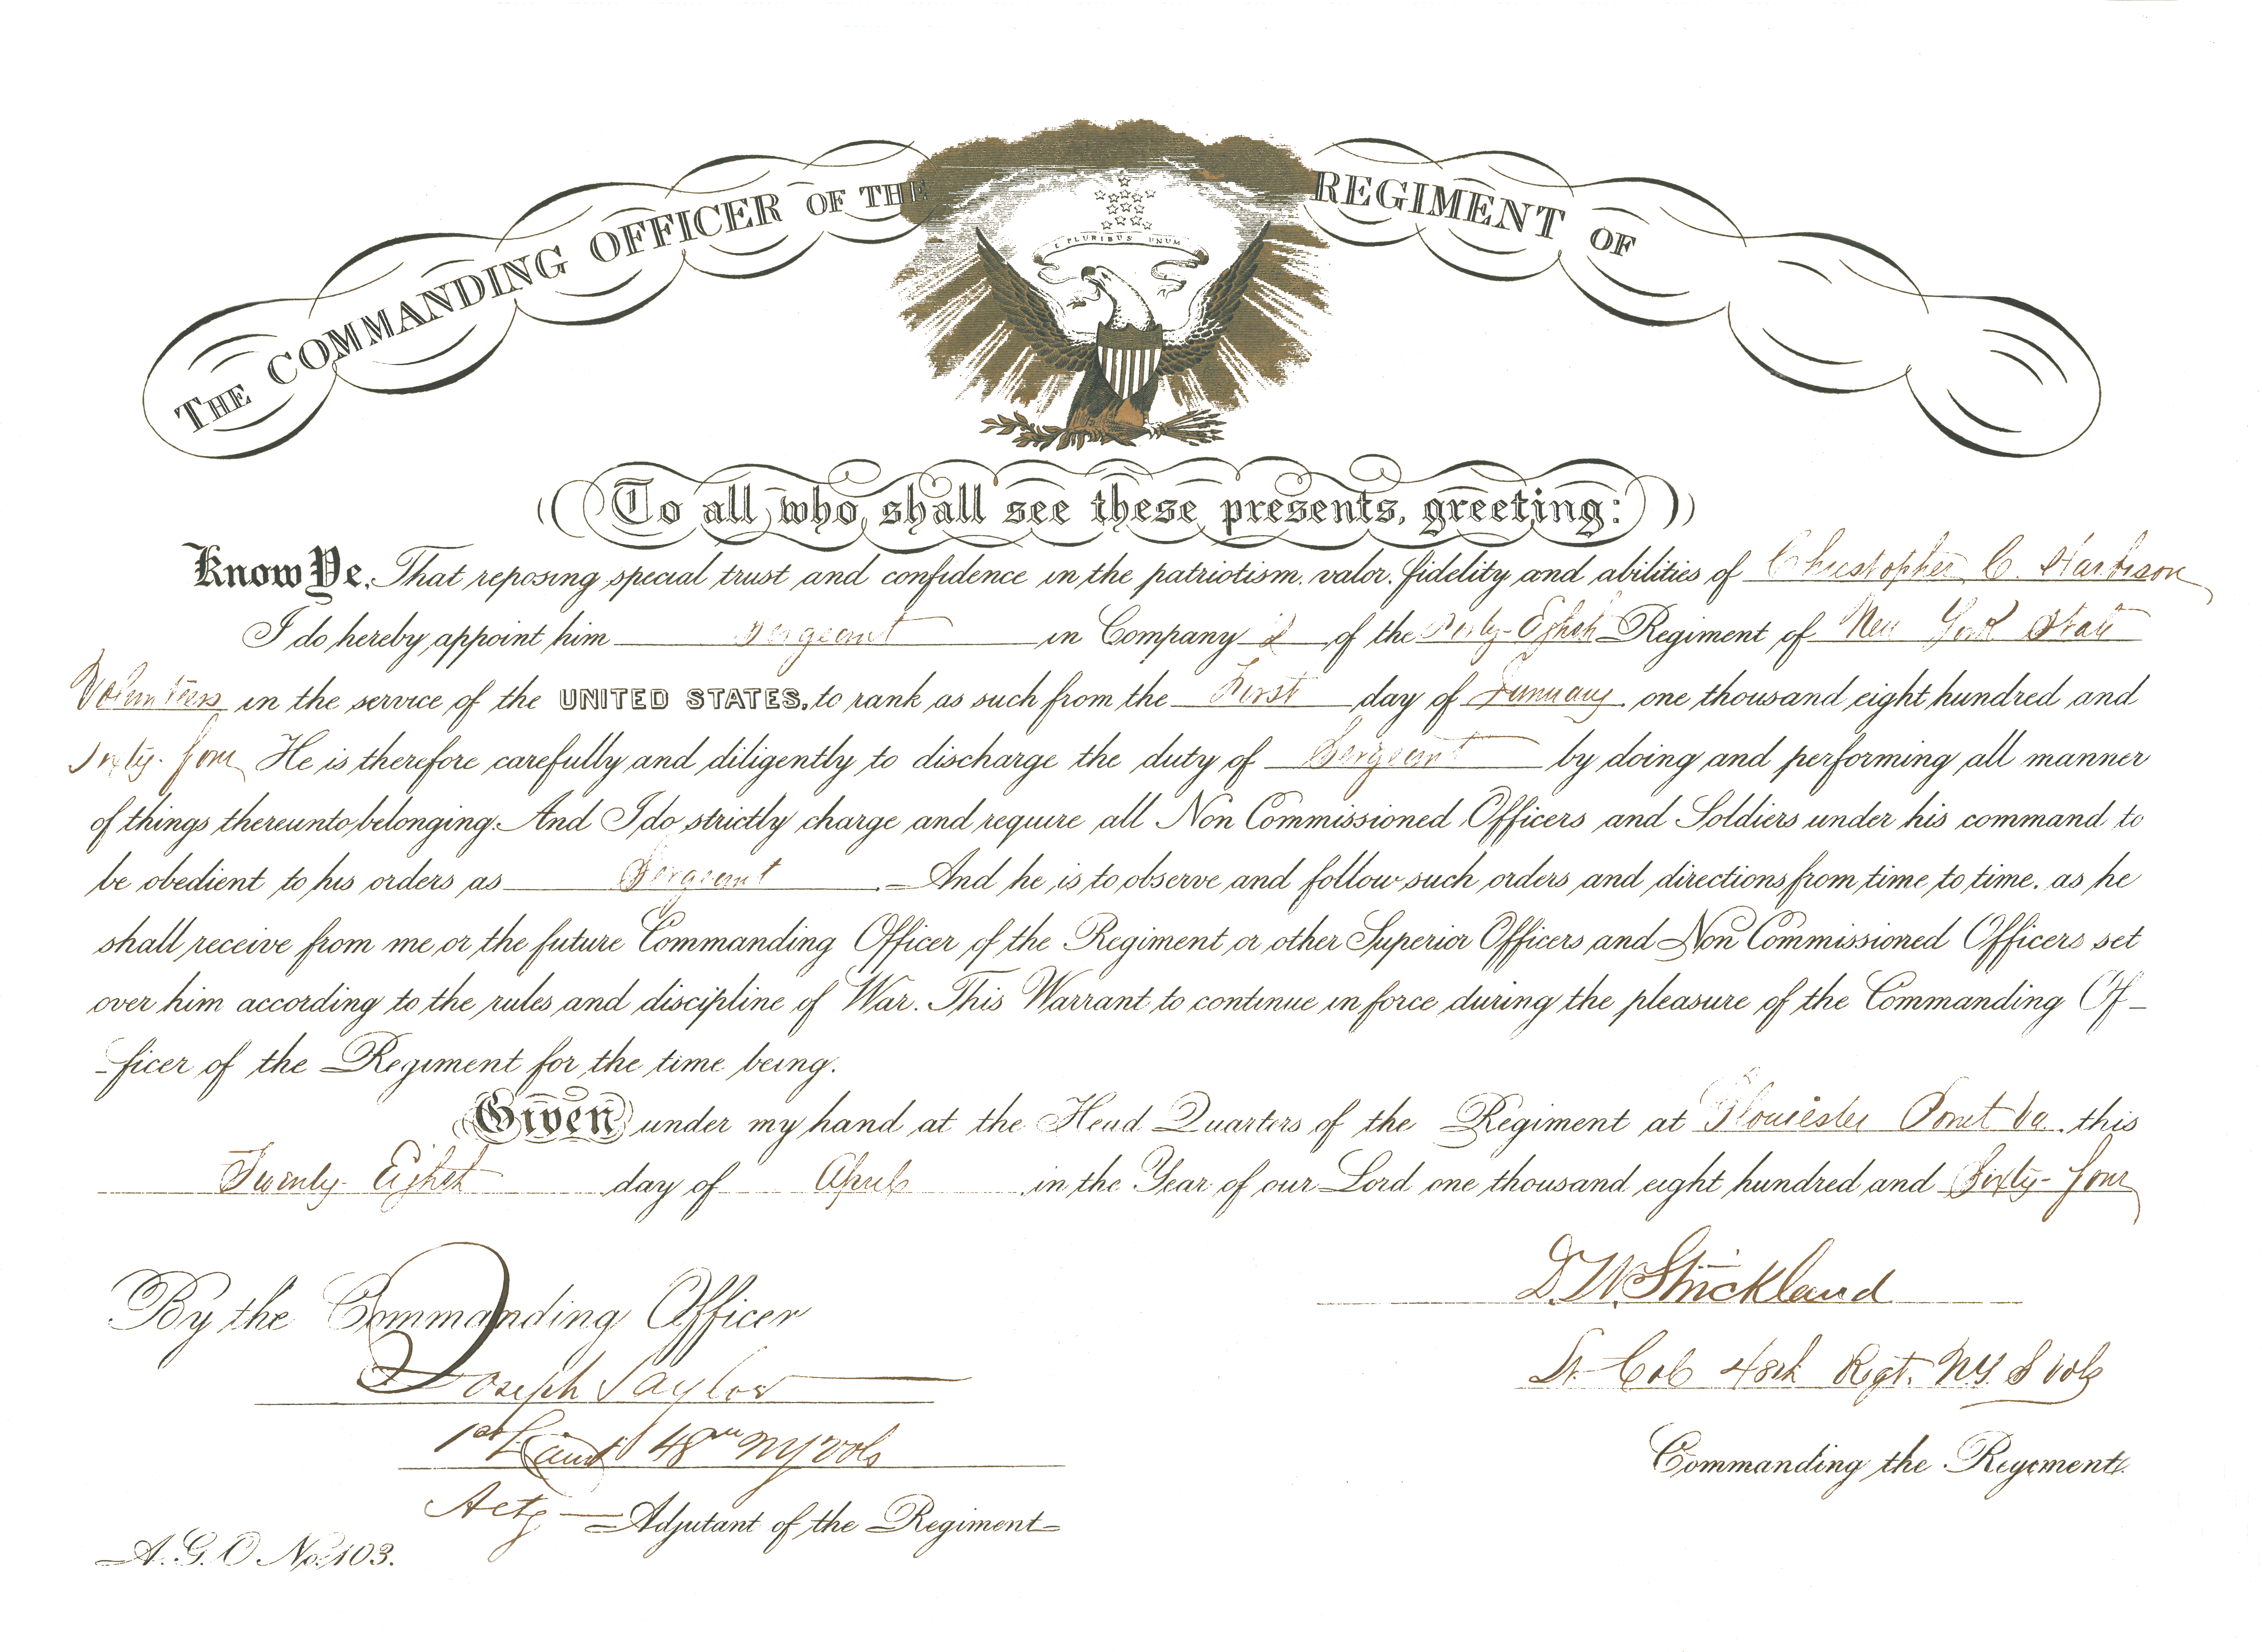 THE COMMANDING OFFICER OF THE REGIMENT OF
E PLURIBUS UNUM
To all who shall see these presents, greeting:
Know Ye, That reposing special trust and confidence in the patriotism, valor, fidelity and abilities of Christopher C. Harbison
I do hereby appoint him Sergeant in Company D of the Forty-Eighth Regiment of New York State
Volunteers in the service of the UNITED STATES, to rank as such from the First day of January one thousand eight hundred and
Sixty-four He is therefore carefully and diligently to discharge the duty of Sergeant by doing and performing all manner
of things thereunto belonging. And I do strictly charge and require all Non Commissioned Officers and Soldiers under his command to
be obedient to his orders as Sergeant And he is to observe and follow such orders and directions from time to time, as he
shall receive from me, or the future Commanding Officer of the Regiment or other Superior Officers and Non Commissioned Officers set
over him according to the rules and discipline of War. This Warrant to continue in force during the pleasure of the Commanding Of-
-ficer of the Regiment for the time being.
Given under my hand at the Head Quarters of the Regiment at Gloucester Point Va. this
Twenty-Eighth day of April in the Year of our Lord one thousand eight hundred and Sixty-four
D. W. Strickland
Lt. Col 48th Regt. N.Y. S Vols
Commanding the Regiment.
By the Commanding Officer
Joseph Taylor
1st Lieut 48th NY Vols
Actg Adjutant of the Regiment
A. G. O No. 103.